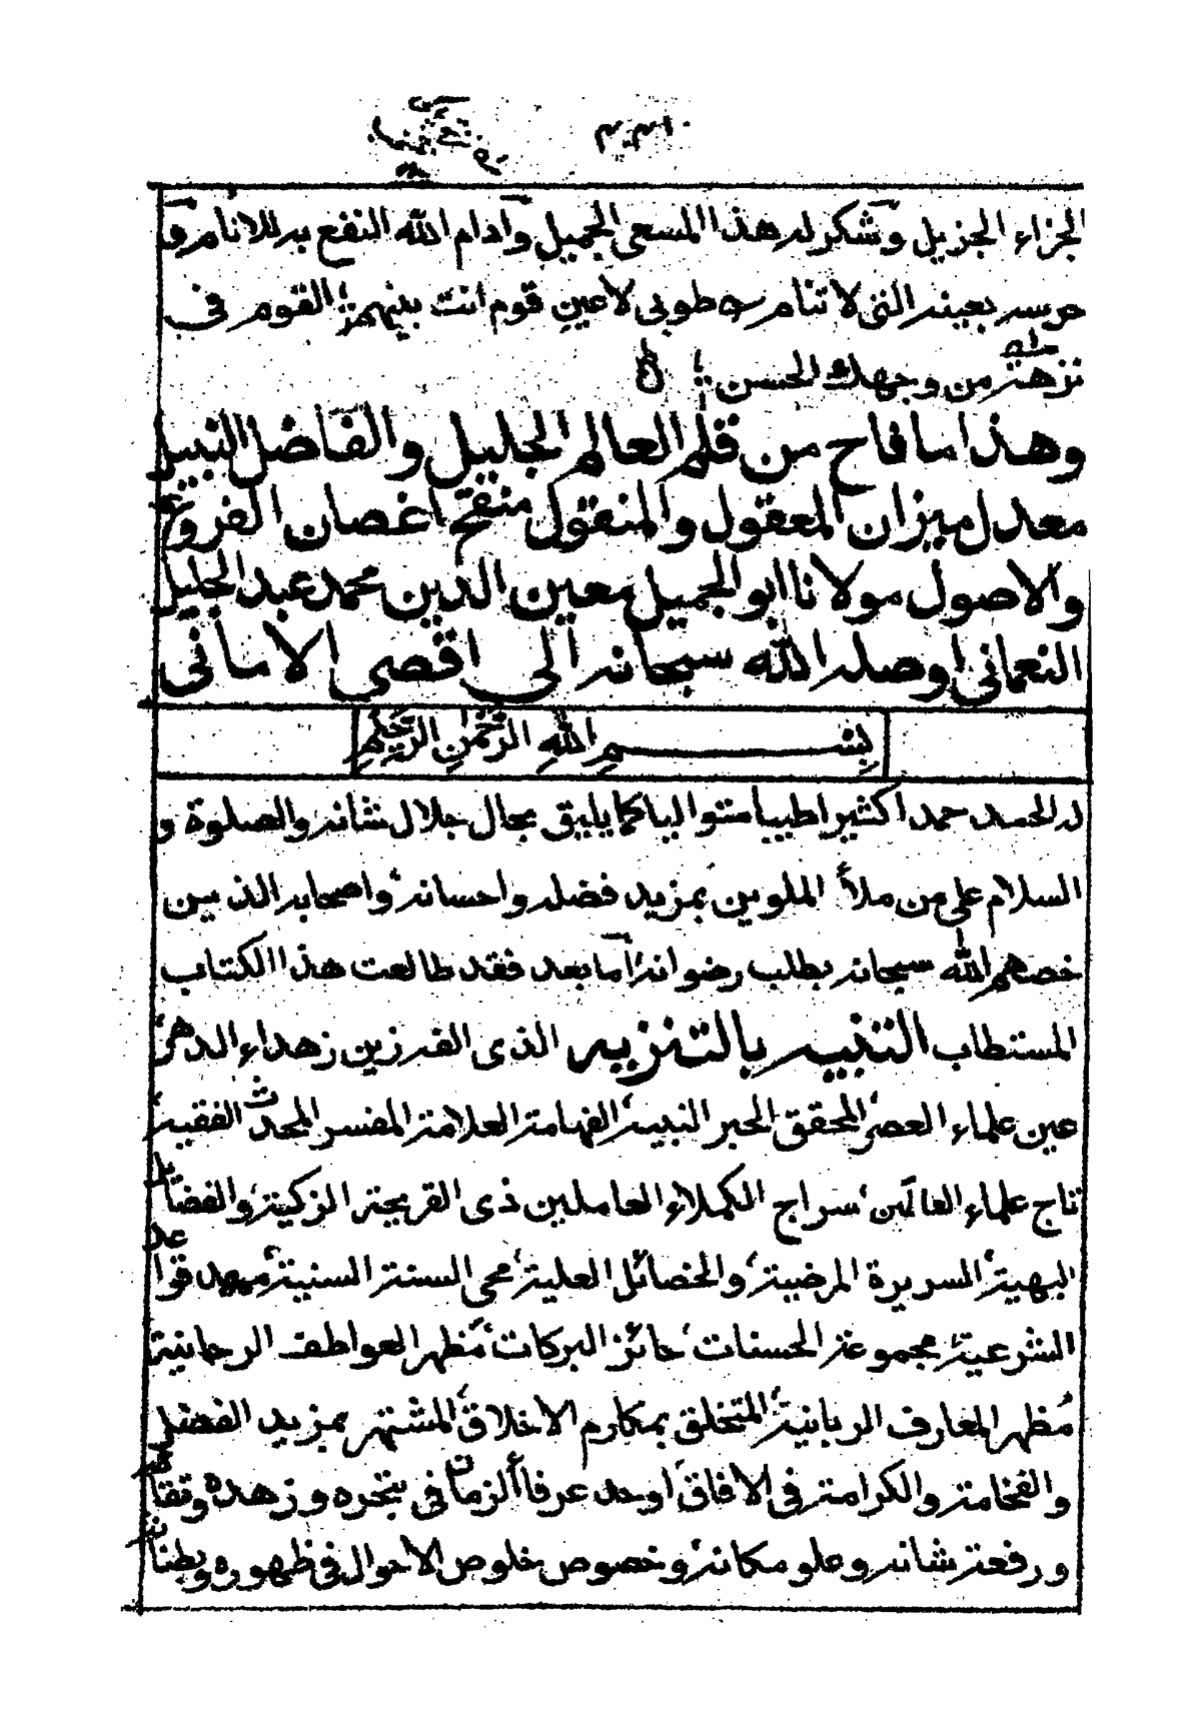 الجزاء الجزيل وشكر له هذا المسعى الجميل وادام الله النفع به للانام وق
حرسه بعينه التى لا تنام ے طوبى لاعين قوم انت بينهم؛ القوم فى
نزهة من وجهك الحسن ؛
وهذا ما فاح من قلم العالم الجليل والفاضل النبيل
معدل ميزان المعقول والمنقول منقح اغصان الفروع
والاصول مولانا ابو الجميل معين الدين محمد عبد الجليل
النعمانى اوصله الله سبحانه الى اقصى الامانى
بِسْمِ اللهِ الرَّحْمٰنِ الرَّحِيْمِ
له الحمد حمدا كثيرا طيبا متواليا كما يليق بحال جلال شانه والصلوة و
السلام على من ملأ الملوين بمزيد فضله واحسانه؛ واصحابه الذين
خصهم الله سبحانه بطلب رضوانه؛ اما بعد فقد طالعت هذا الكتاب
المستطاب التنبيه بالتنزيه الذى الفه زين زهداء الدهر؛
عين علماء العصر؛ المحقق الحبر النبيه؛ الفهامة العلامة المفسر المحدث الفقيه؛
تاج علماء العالمين؛ سراج الكملاء العاملين ذى القريحة الزكية؛ والفضائل
البهية؛ السريرة المرضية؛ والخصائل العلية؛ محى السنة السنية؛ ممهد قواعد
الشرعية؛ مجموعة الحسنات؛ حائز البركات؛ مَظهر العواطف الرحمانية
مُظهر المعارف الربانية؛ المتخلق بمكارم الاخلاق؛ المشتهر بمزيد الفضل
والفخامة والكرامة فى الافاق؛ اوحد عرفاء الزمان فى تبحره وزهده وتقائه
ورفعة شانه وعلو مكانه؛ وخصوص خلوص الاحوال فى ظهوره وبطنانه